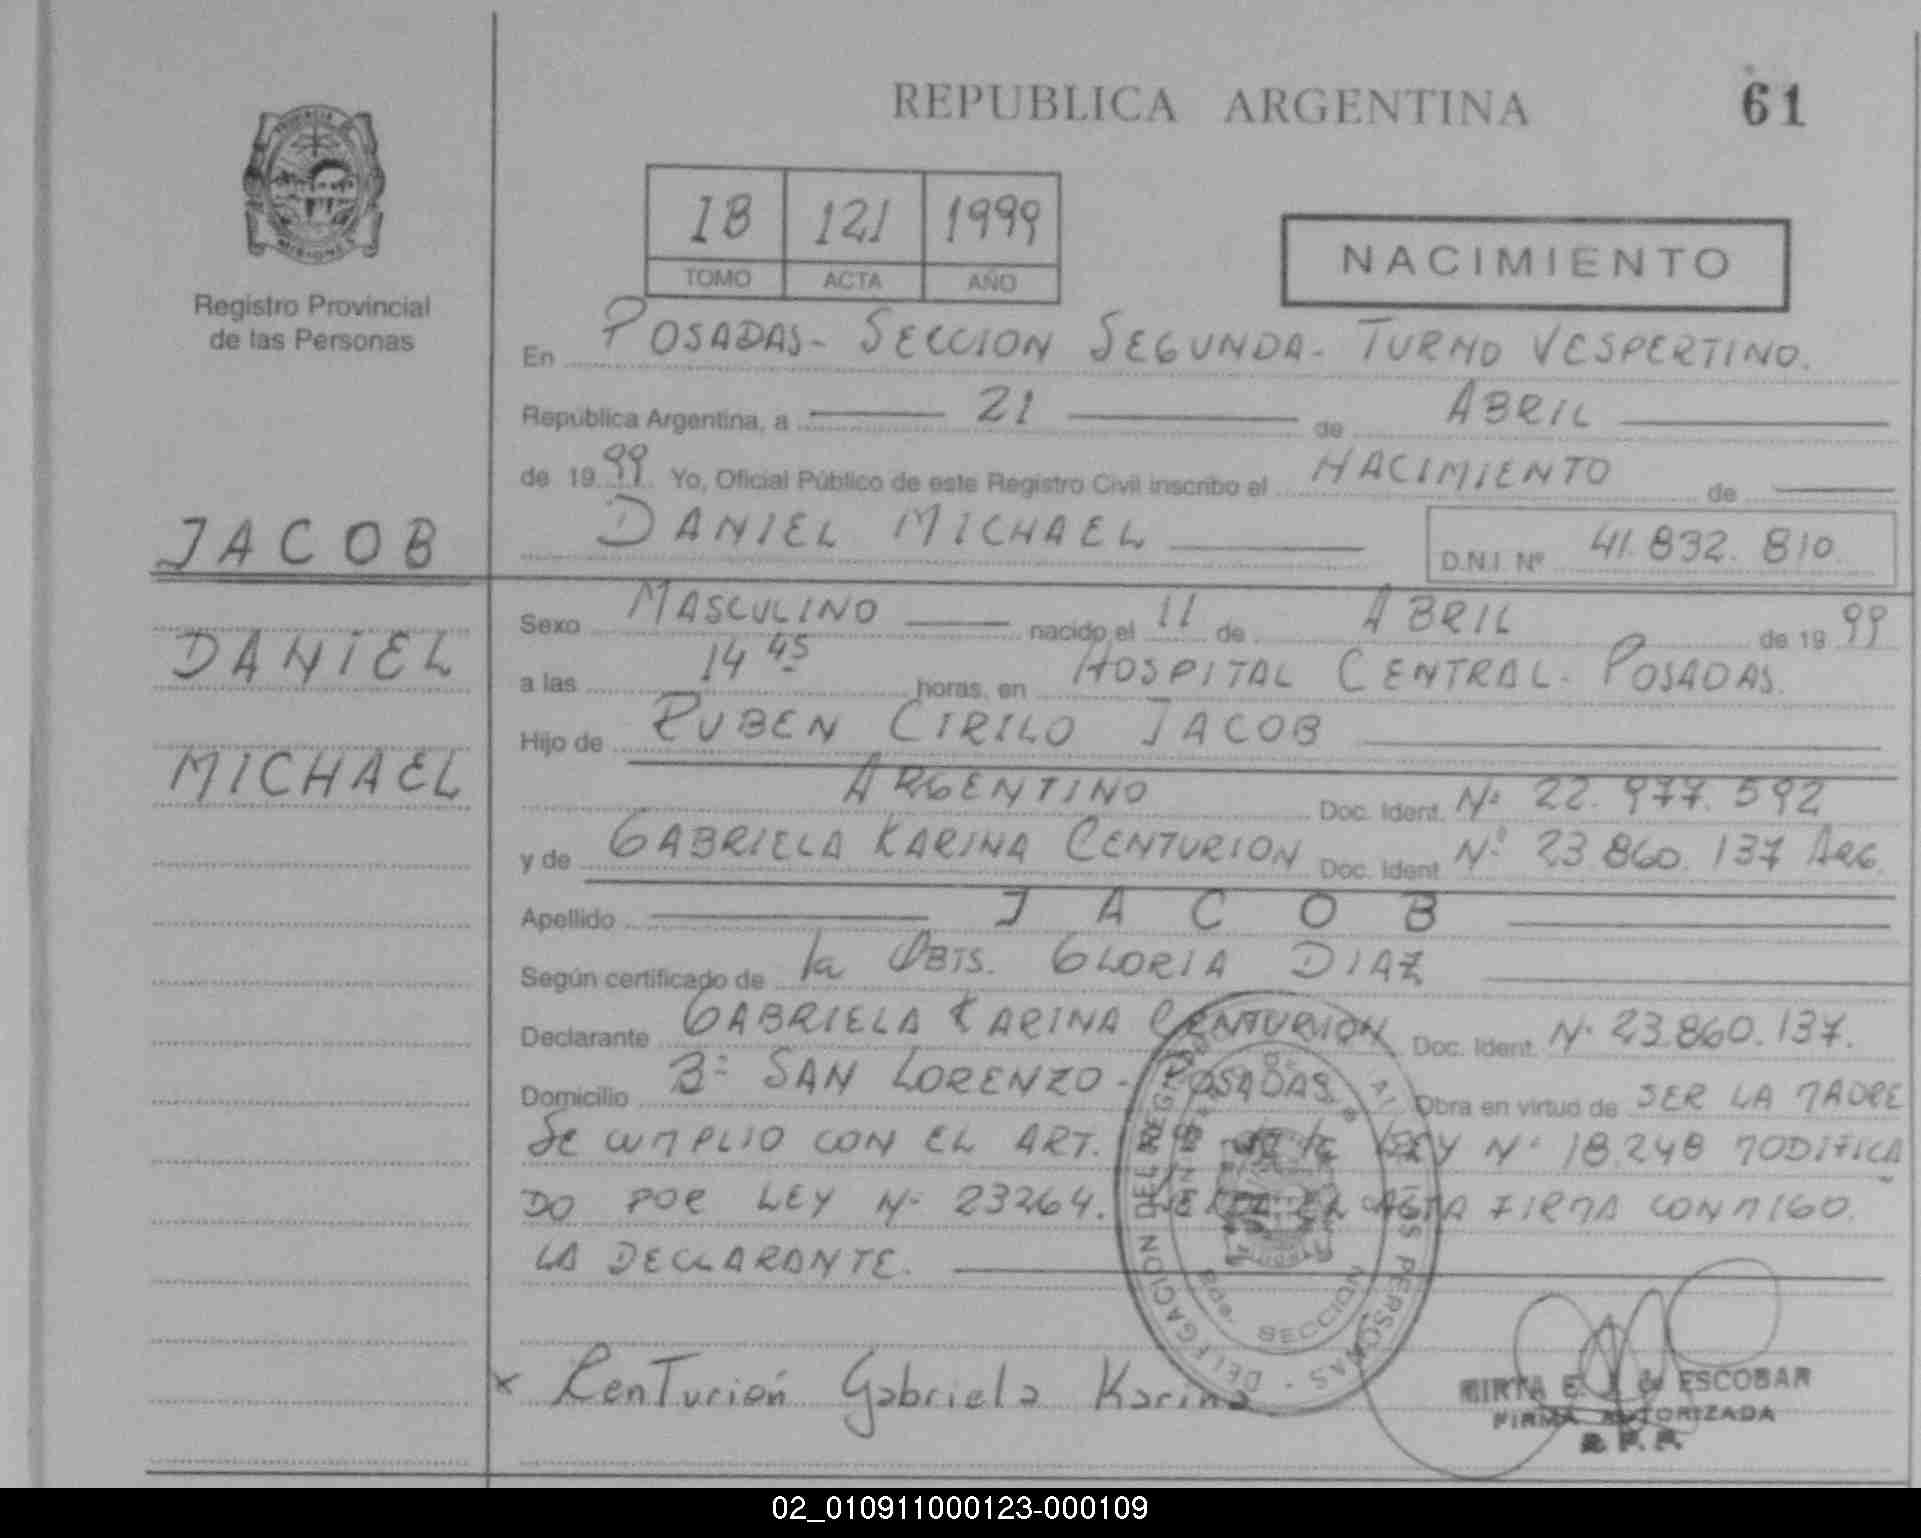 REPUBLICA ARGENTINA
61
18 121 1999
TOMO ACTA AÑO
NACIMIENTO
PROVINCIA DE
MISIONES
Registro Provincial
de las Personas
En POSADAS- SECCION SEGUNDA- TURNO VESPERTINO.
República Argentina, a 21 de ABRIL
de 1999 Yo, Oficial Público de este Registro Civil inscribo el NACIMIENTO de
DANIEL MICHAEL D.N.I. Nº 41.832.810
JACOB
DANIEL
MICHAEL
Sexo MASCULINO nacido el 11 de ABRIL de 1999
a las 14 45 horas, en HOSPITAL CENTRAL- POSADAS.
Hijo de RUBEN CIRILO JACOB
ARGENTINO Doc. Ident. Nº 22.977.592
y de GABRIELA KARINA CENTURION Doc. Ident. Nº 23.860.137 ARG.
Apellido JACOB
Según certificado de la OBTS. GLORIA DIAZ
Declarante GABRIELA KARINA CENTURION Doc. Ident. Nº 23.860.137.
Domicilio Bº SAN LORENZO- POSADAS. Obra en virtud de SER LA MADRE
SE CUMPLIO CON EL ART. LEY Nº 18.248 MODIFICA
DO POR LEY Nº 23264. ACTA FIRMA CONMIGO.
LA DECLARANTE.
x Centurión Gabriela Karina
DELEGACION DEL REGISTRO PERSONAS
2da. SECCION
MIRTA E. de ESCOBAR
FIRMA AUTORIZADA
R.P.P.
02_010911000123-000109